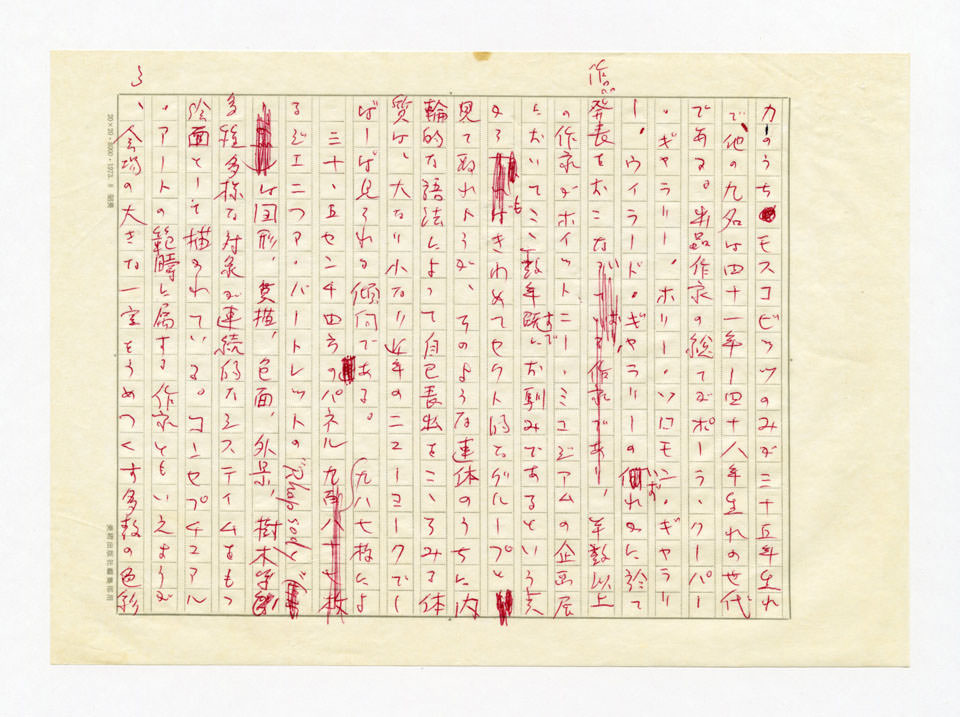 カのうちモスコビッツのみが三十五年生れ
で、他の九名は四十一年―四十八年生れの世代
である。出品作家の総てがポーラ・クーパー
・ギャラリー、ホリー・ソロモン・ギャラリ
ー、ウィラード・ギャラリーの何れかに於て
発表をおこなっており、半数以上
の作家がホイットニー・ミュジアムの企画展
においてここ数年既にお馴みであるという点
からもきわめてセクト的なグループと
見て取れようが、そのような連体のうちに内
輪的な語法によって自己表出をこころみる体
質は、大なり小なり近年のニューヨークでし
ばしば見られる傾向である。
三十・五センチ四方のパネル九八七枚によ
るジェニファ・バートレットの"Rhapsody"
は図形、素描、色面、外景、樹木等
多種多様な対象が連続的なシスティムをもっ
絵画として描かれている。コンセプチュアル
・アートの範疇に属する作家ともいえようが
、会場の大きな一室をうめつくす多数の色彩
20×20